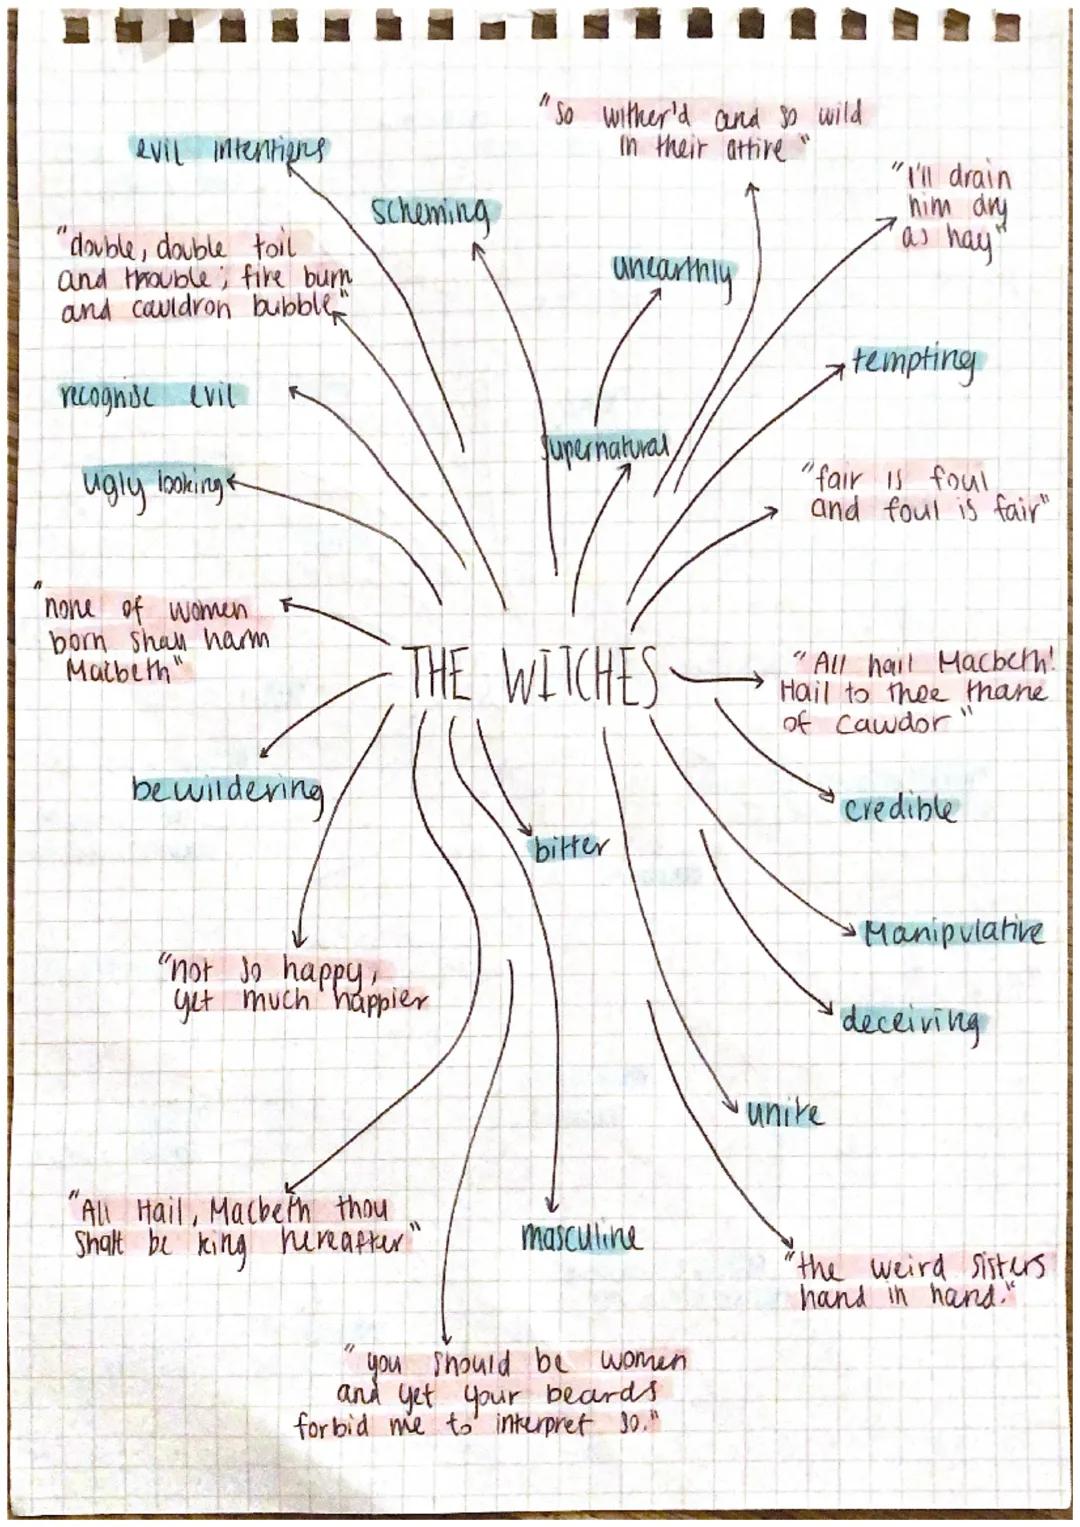 "So wither'd and so wild
in their attire"
evil intentions
scheming
"I'll drain
him dry
as hay"
"double, double toil
and trouble; fire burn
and cauldron bubble"
unearthly
tempting
recognise evil
supernatural
ugly looking
"fair is foul
and foul is fair"
"none of women
born shall harm
Macbeth"
THE WITCHES
"All hail Macbeth!
Hail to thee thane
of Cawdor"
bewildering
credible
bitter
Manipulative
"not so happy,
yet much happier
deceiving
unite
"All Hail, Macbeth thou
shalt be king hereafter"
masculine
"the weird sisters
hand in hand."
"you should be women
and yet your beards
forbid me to interpret so."